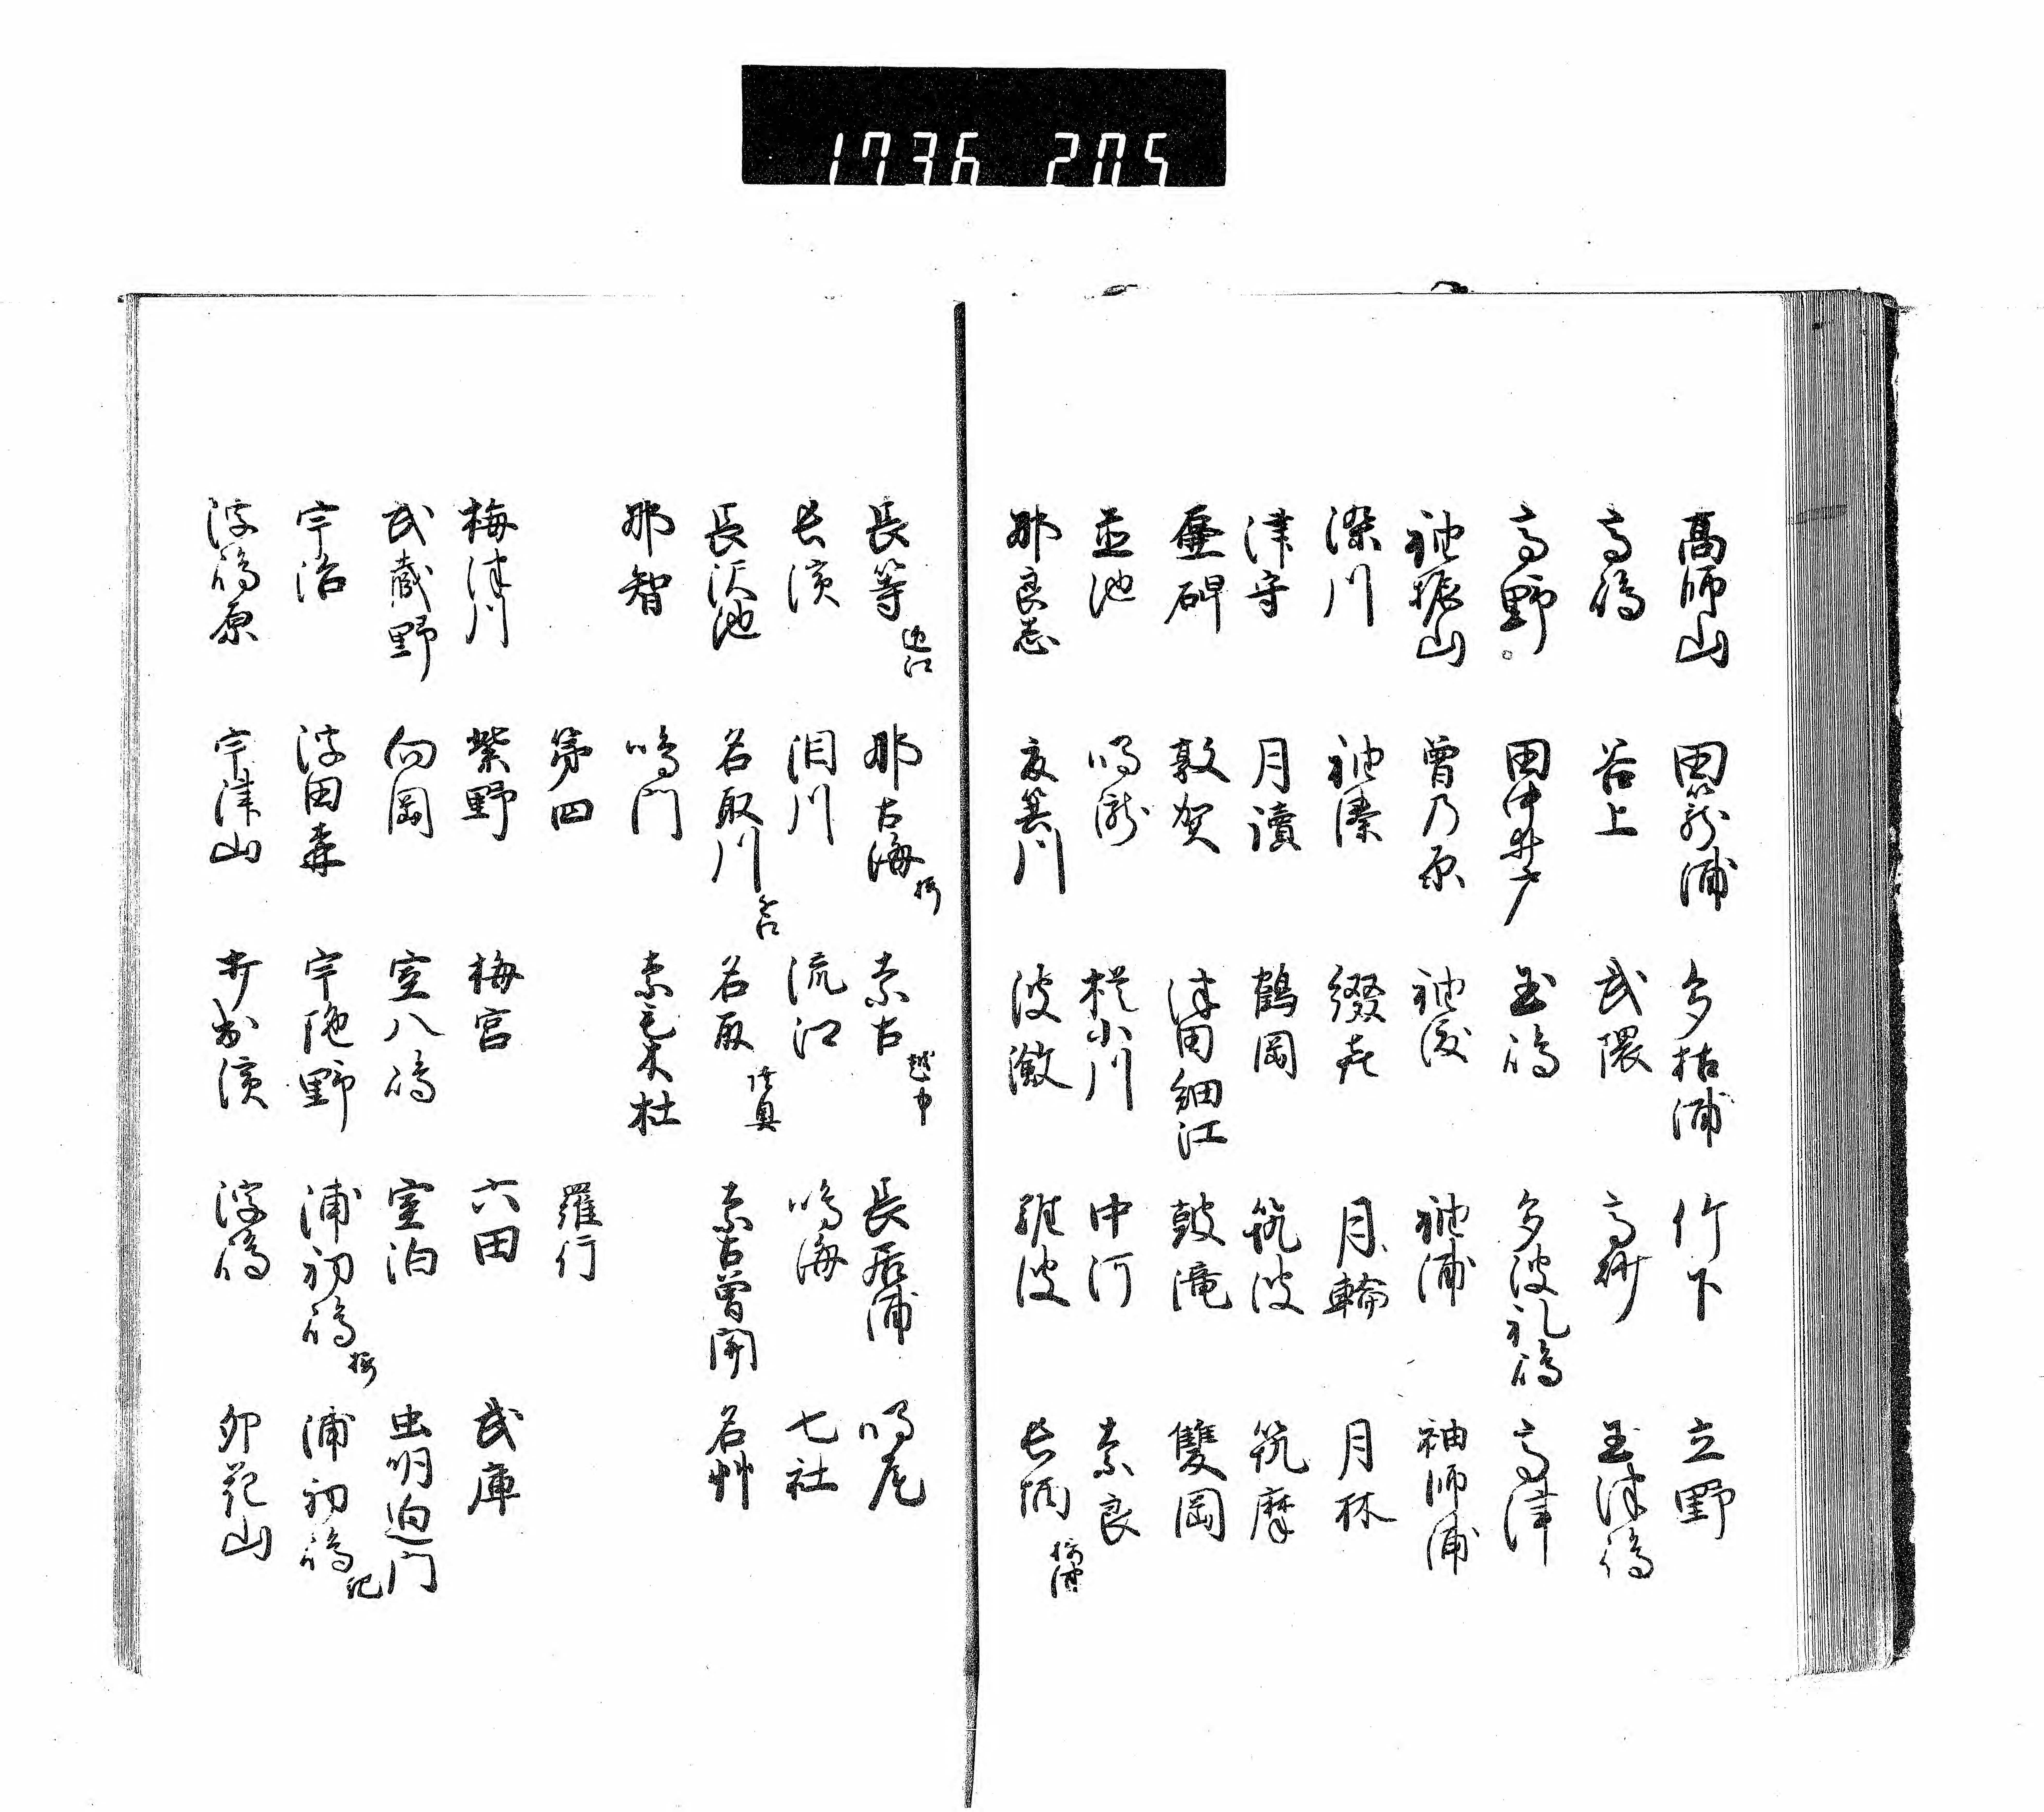 1736 205
高師山 田籠浦 多枯浦 竹下 立野
高嶋 谷上 武隈 高砂 玉津嶋
高野 田中井戸 玉嶋 多波礼嶋 高津
袖振山 曽乃原 袖渡 袖浦 袖師浦
染川 袖湊 綴喜 月輪 月林
津守 月讀 鶴岡 筑波 筑摩
壺碑 敦賀 津田細江 鼓滝 雙岡
並池 鳴瀧 梍小川 中河 奈良
那良志 夜箕川 浪瀲 難波 長柄
長等 近江 那古海 摂 奈古 越中 長居浦 鳴尾
長濱 泪川 流江 鳴海 七社
長沢池 名取川 名取 陸奥 奈古曽関 名草
那智 鳴門 奈毛木杜
第四 羅行
梅津川 紫野 梅宮 六田 武庫
武蔵野 向岡 室八嶋 室泊 虫明迫门
宇治 浮田森 宇陀野 浦初嶋 摂 浦初嶋 紀
浮嶋原 宇津山 打出濱 浮嶋 卯花山